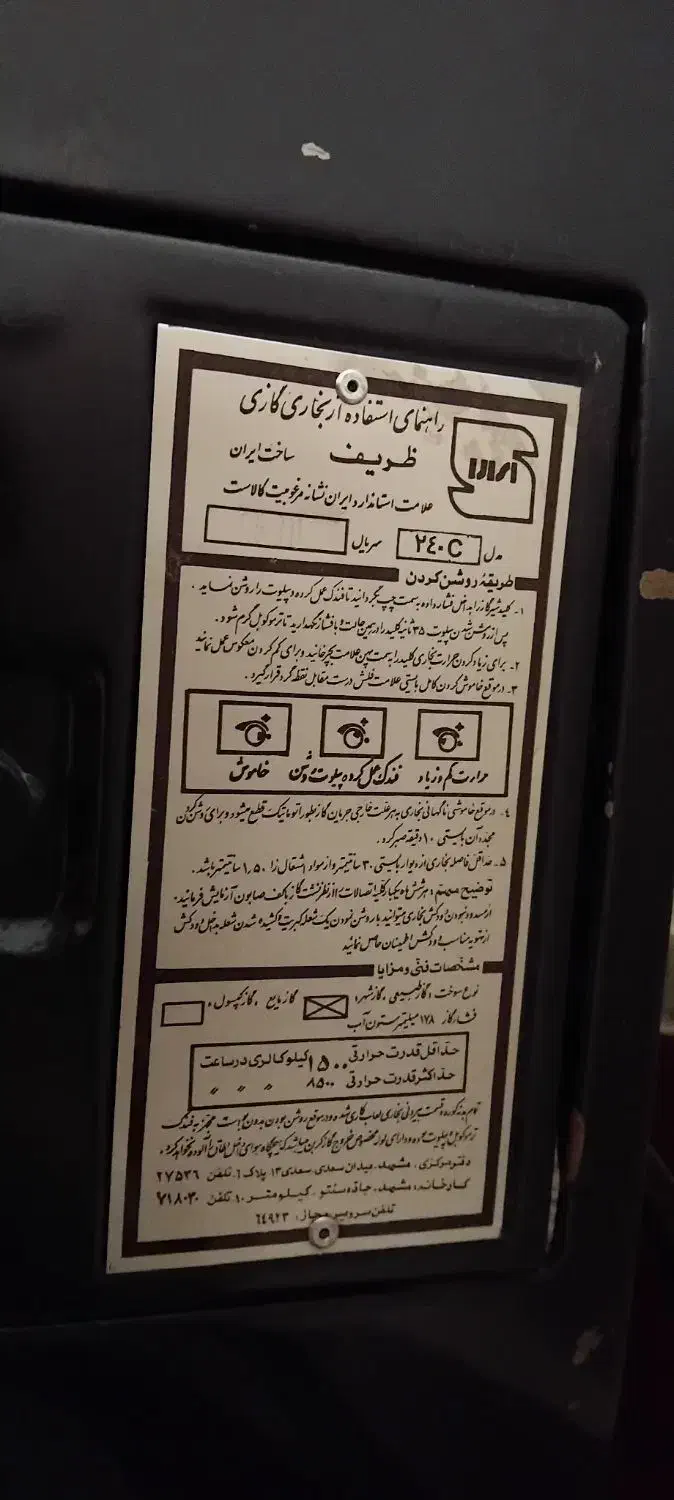 راهنمای استفاده از بخاری گازی
ظریف ساخت ایران
علامت استاندارد ایران نشانه مرغوبیت کالاست
مدل ۲۴۰C سریال
طریقه روشن کردن
۱- کلید شیر گاز را به داخل فشار داده به سمت چپ بگردانید تا فندک عمل کرده و پیلوت را روشن نماید.
پس از روشن شدن پیلوت ۳۵ ثانیه کلید را در همین حالت با فشار نگهدارید تا ترموکوپل گرم شود.
۲- برای زیاد کردن حرارت بخاری کلید را به سمت همین علامت بچرخانید و برای کم کردن معکوس عمل نمائید
۳- در موقع خاموش کردن کامل بایستی علامت فلش درست مقابل نقطه گرد قرار گیرد.
حرارت کم و زیاد فندک عمل کرده پیلوت روشن خاموش
۴- در موقع خاموشی ناگهانی بخاری به هر علت خارجی جریان گاز بطور اتوماتیک قطع میشود و برای روشن کردن
مجدد آن بایستی ۱۰ دقیقه صبر کرد.
۵- حداقل فاصله بخاری از دیوار بایستی ۳۰ سانتیمتر و از مواد اشتعال زا ۱٫۵۰ سانتیمتر باشد.
توضیح مهم: هر شش ماه یکبار کلیه اتصالات را از نظر نشت گاز با کف صابون آزمایش فرمائید.
از مسدود نبودن دودکش بخاری میتوانید با روشن نمودن یک شعله کبریت و کشیده شدن شعله به داخل دودکش
از تهویه مناسب دودکش اطمینان حاصل نمائید
مشخصات فنی و مزایا
نوع سوخت: گاز طبیعی، گاز شهر: گاز مایع، گاز کپسول:
فشار گاز ۱۷۸ میلیمتر ستون آب
حداقل قدرت حرارتی ۱۵۰۰ کیلو کالری در ساعت
حداکثر قدرت حرارتی ۸۵۰۰ " " "
تمام بدنه کوره و قسمت بیرونی بخاری لعاب کاری شده و در موقع روشن بودن بدون بو است مجهز به فندک
ترموکوپل پیلوت بوده و دارای لوله مخصوص خروج گاز کربن میباشد که هیچگاه هوای داخل اطاق را آلوده نخواهد کرد.
دفتر مرکزی: مشهد، میدان سعدی سعدی ۱۳ پلاک ۶ تلفن ۲۷۵۳۶
کارخانه: مشهد، جاده سنتو، کیلومتر ۱۰ تلفن ۷۱۸۰۳۰
تلفن سرویس مجاز: ۶۴۹۲۳